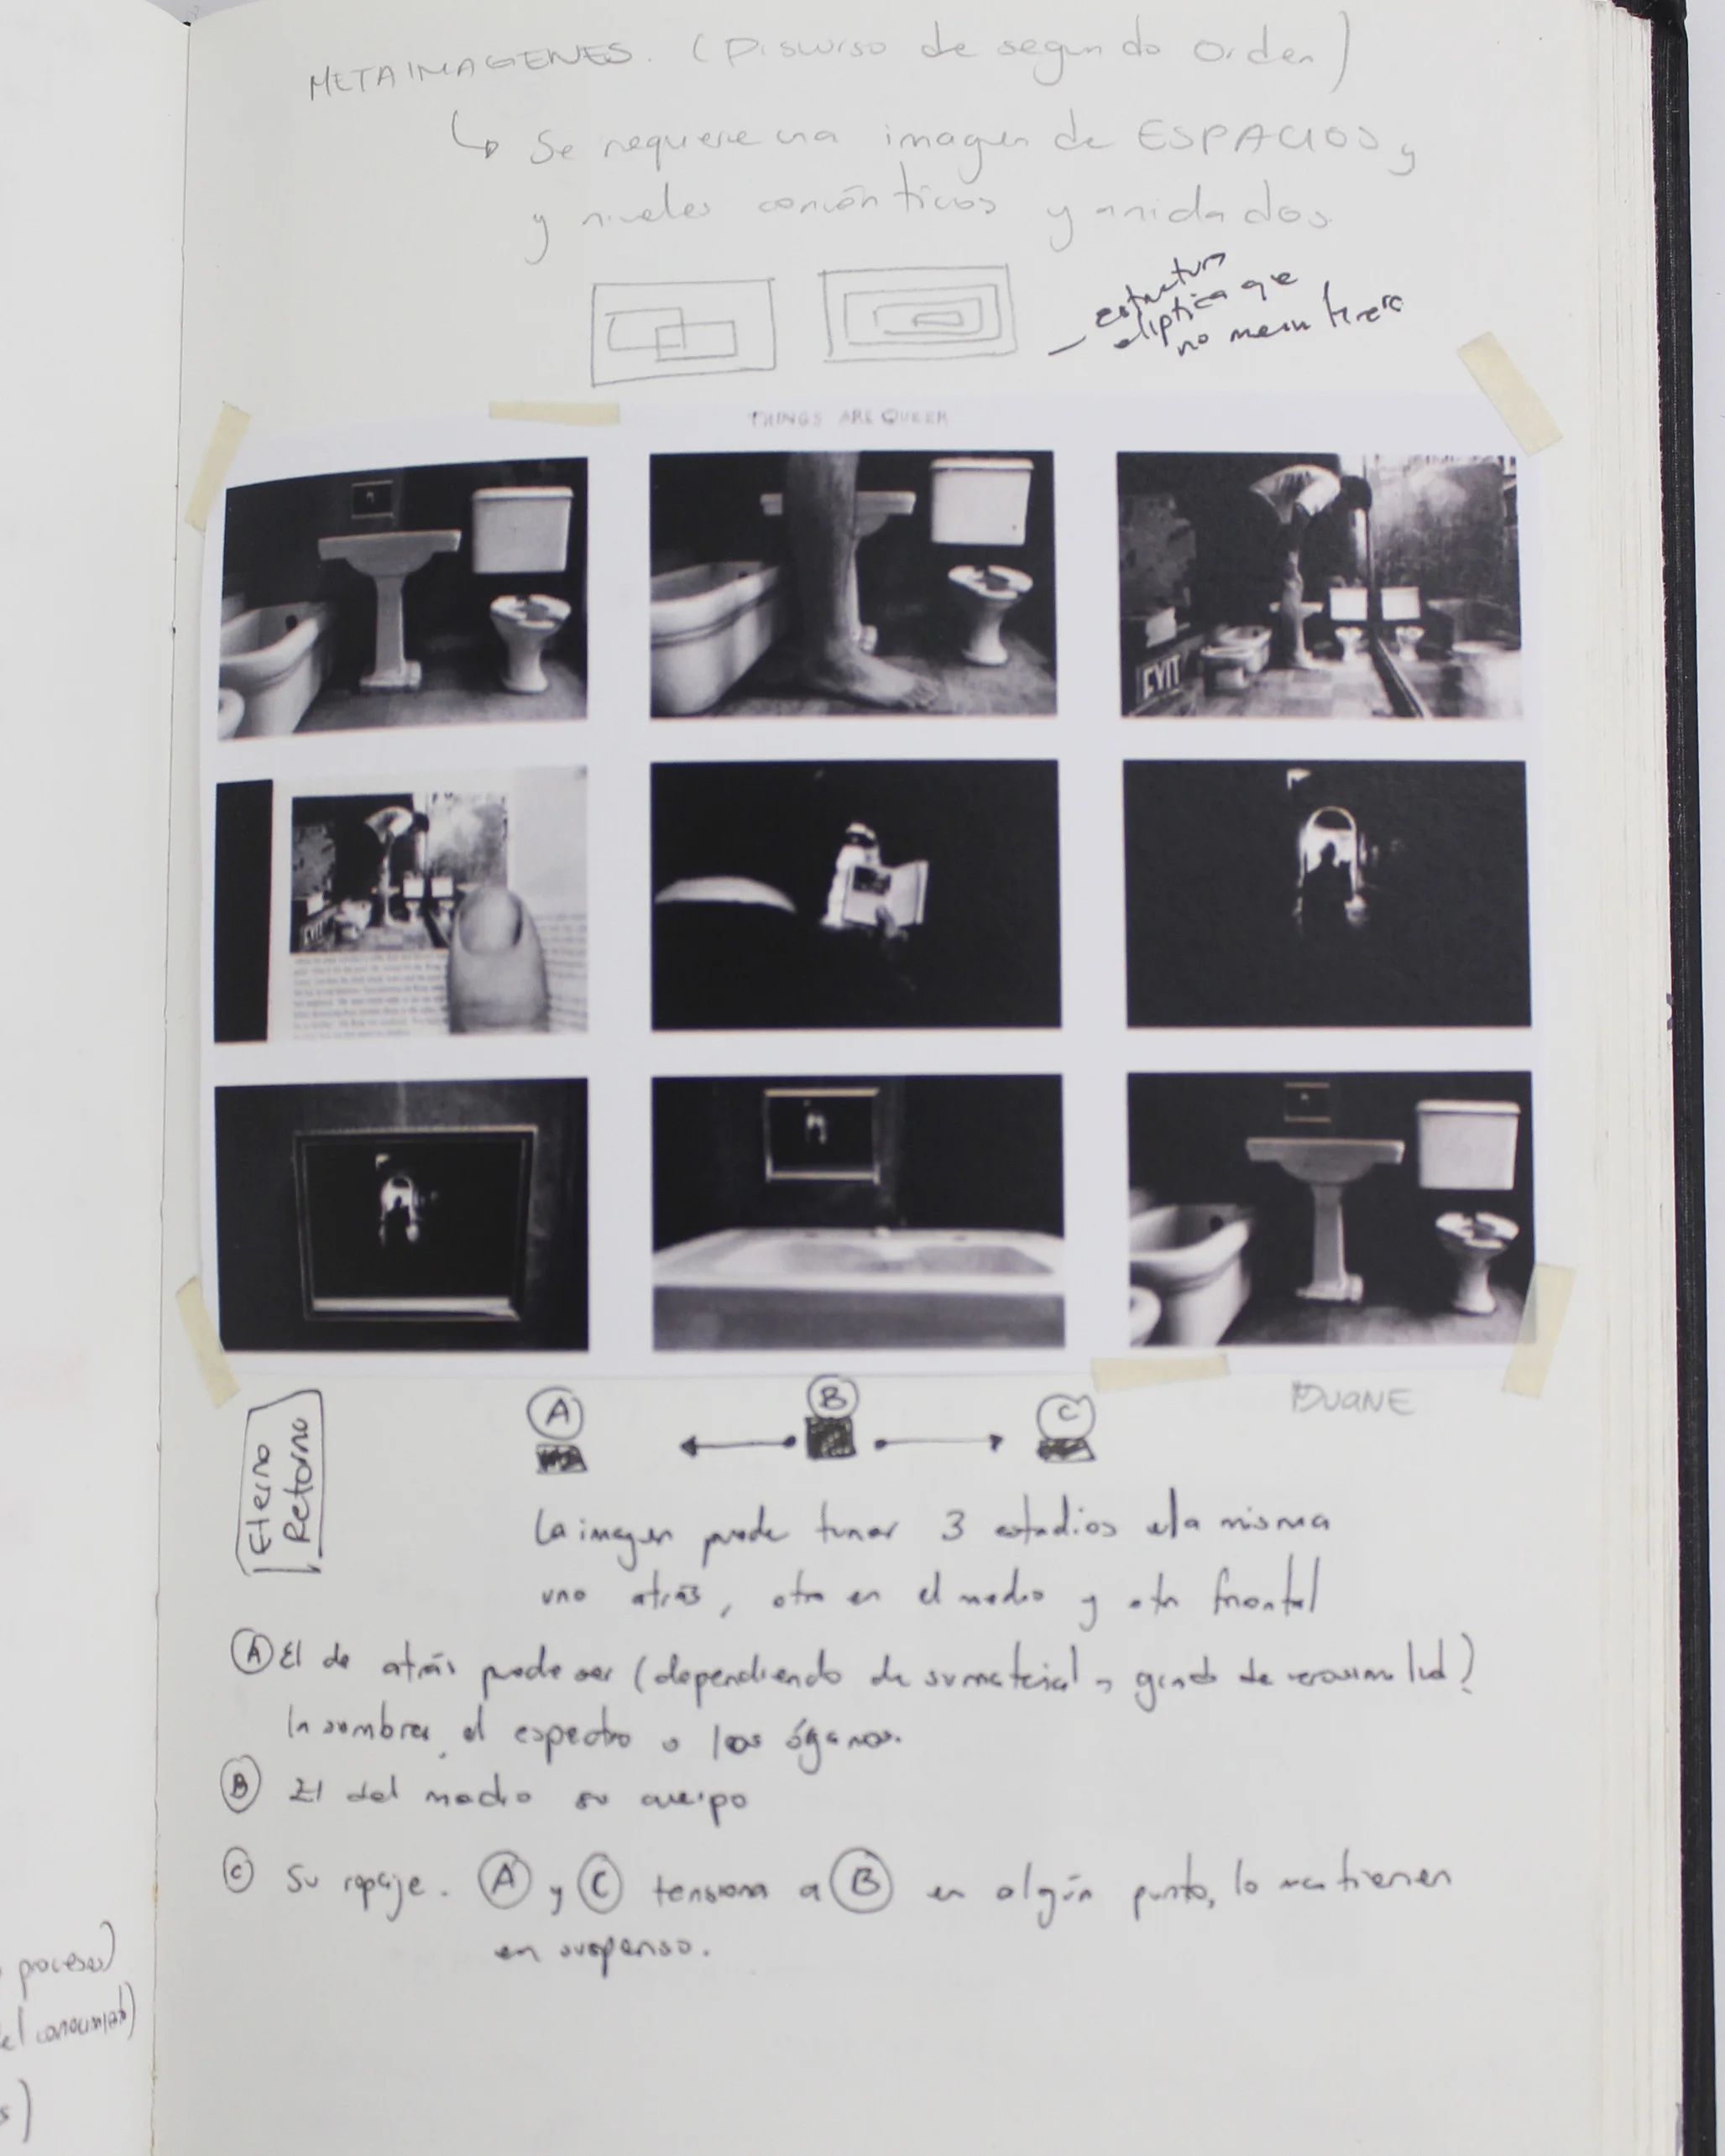 METAIMAGENES. (Discurso de segundo orden)
↳ Se requiere una imagen de ESPACIOS y
y niveles concéntricos y anidados
estructura
elíptica que
no
THINGS ARE QUEER
EXIT
EXIT
DUANE
A B C
Eterno
Retorno
La imagen puede tener 3 estadios la misma
uno atrás, otro en el medio y otro frontal
A El de atrás puede ser (dependiendo de su material y grado de verosimilitud)
la sombra, el espectro o los óganos.
B El del medio su cuerpo
C Su ropaje. A y C tensiona a B en algún punto, lo mantienen
en suspenso.
procesos)
el consumista)
s)